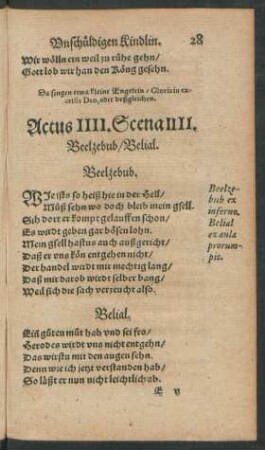 Vnschüldigen Kindlin. 28
Wir wölln ein weil zu rühe gehn/
Gott lob wir han den Köng gesehn.
Da singen etwa kleine Engelein / Gloria in ex-
celsis Deo, oder deßgleichen.
Actus IIII. Scena IIII.
Beelzebub/Belial.
Beelzebub.
Wie ists so heiß hie in der Hell/
Müß sehn wo doch bleib mein gsell.
Sih dort er kompt gelauffen schon/
Es wirdt geben gar bösen lohn.
Mein gsell hastus auch außgericht/
Daß er vns kön entgehen nicht/
Der handel wirdt mir mechtig lang/
Daß mir darob wirdt selber bang/
Weil sich die sach verzeucht also.
Beelze-
bub ex
inferno.
Belial
ex aula
prorum-
pit.
Belial.
Ein güten müt hab vnd sei fro/
Herodes wirdt vns nicht entgehn/
Das wirstu mit den augen sehn.
Denn wie ich jetzt verstanden hab/
So läßt er nun nicht leichtlich ab.
E v